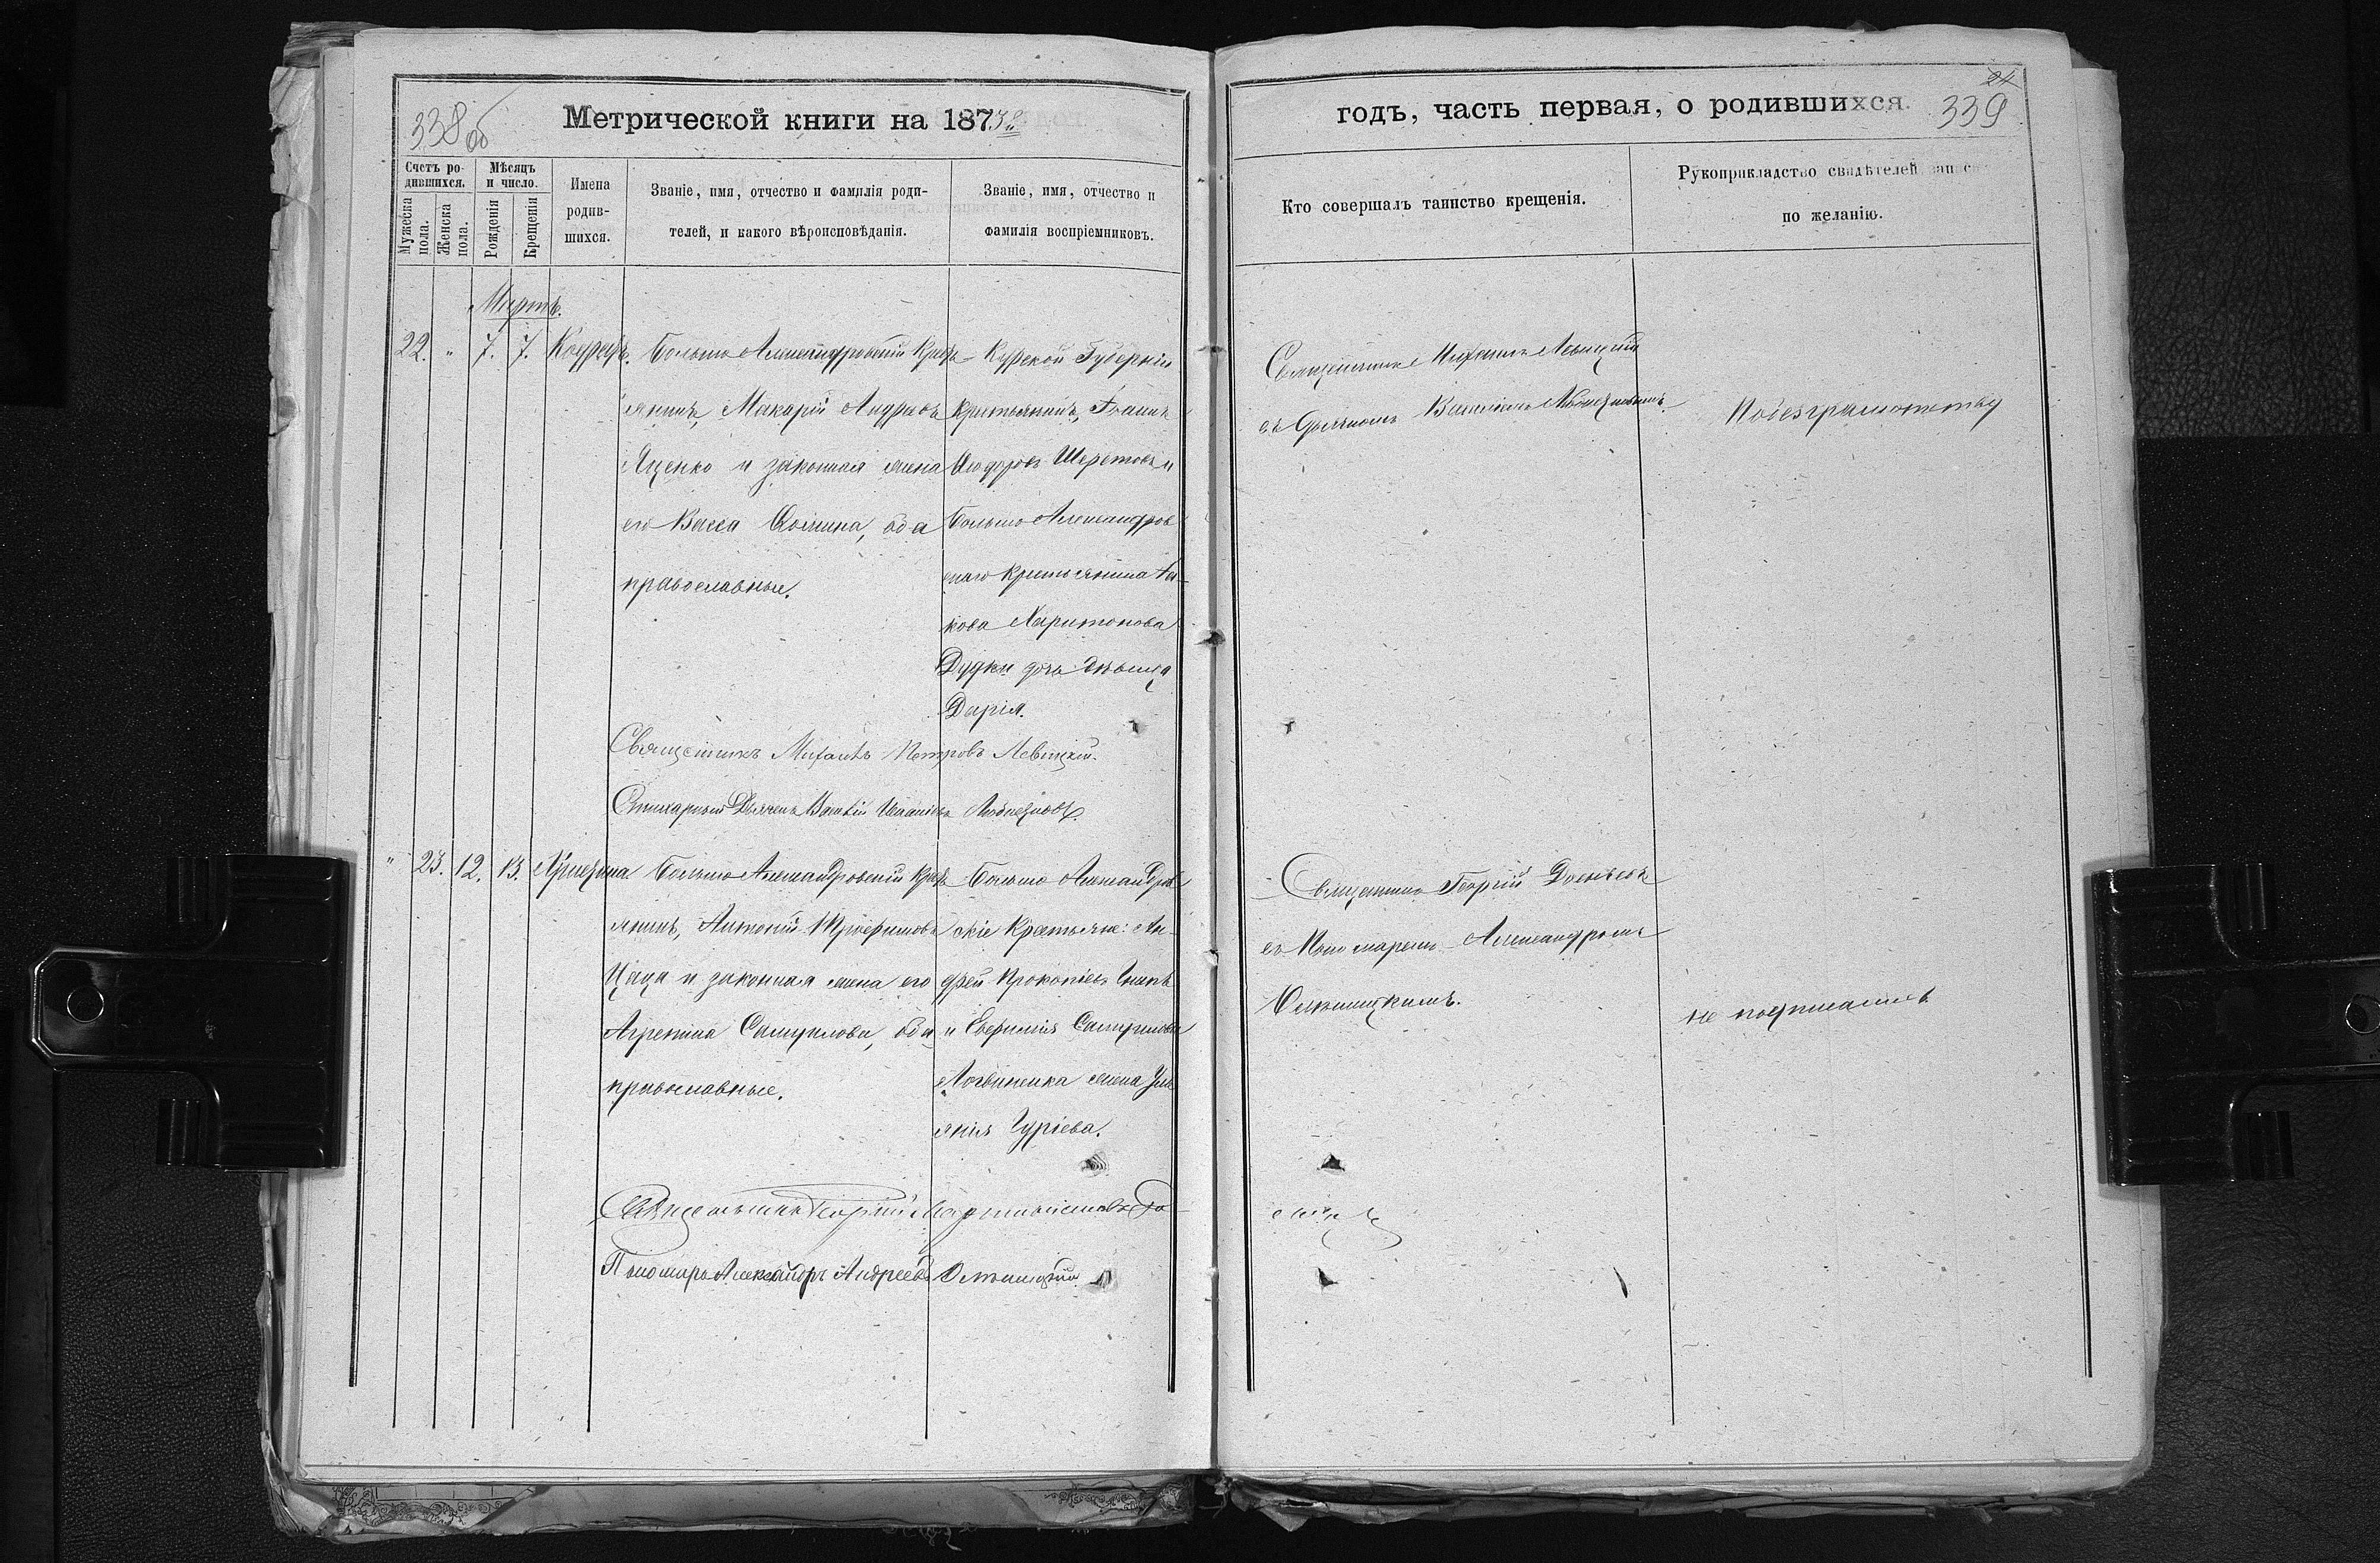 338 об
Метрической книги на 1873й
Счетъ родившихся.
Мужеска пола.
Женска пола.
Мѣсяцъ и число.
Рожденія
Крещенія
Имена родившихся.
Званіе, имя, отчество и фамилія родителей, и какого вѣроисповѣданія.
Званіе, имя, отчество и фамилія воспріемниковъ.
Мартъ.
22. " 7. 7. Кодратъ.
Больше Александровскій Крестьянинъ, Макарій Андреевъ
Яценко и законная жена
его Васса Фомина, оба
православные.
Курской Губерніи
Крестьянинъ, Іоаннъ
Ѳеодоровъ Шереметовъ и
Больше Александровскаго Крестьянина Іакова Харитонова
Дудки дочь дѣвица
Дарія.
Священникъ Михаилъ Петровъ Левицкій.
Стихарный Дьячекъ Василій Игнатіевъ
" 23. 12. 13.
Больше Александровскій Крестьянинъ, Антоній Трофимовъ
Цаца и законная жена его
Агрепина Самуилова, оба
православные.
Больше Александровскіе Крестьяне: Андрей Прокопіевъ
и Евфимія Самуилова
Логвиненка жена Уліянія Гуріева.
Священникъ Георгій
Пономарь Александръ Андреевъ
годъ, часть первая, о родившихся.
24
339
Кто совершалъ таинство крещенія.
Рукоприкладство свидѣтелей записи
по желанію.
Священникъ Михаилъ Левицкій
съ Дьячкомъ Василіемъ
По безграмотству
Священникъ Георгій
съ Пономаремъ Александромъ
не подписались